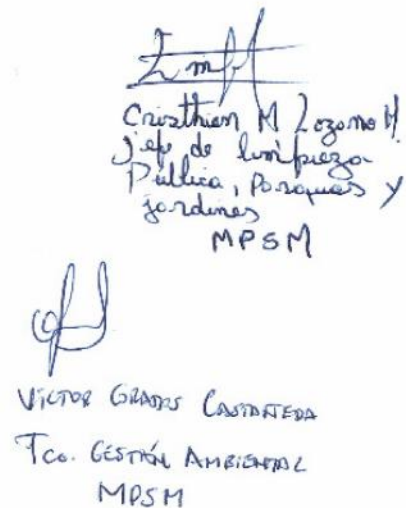 Cristhian M Lozano H.
Jefe de limpieza
Pública, Parques y
jardines
MPSM
VICTOR GRADOS CASTAÑEDA
Tco. GESTIÓN AMBIENTAL
MPSM